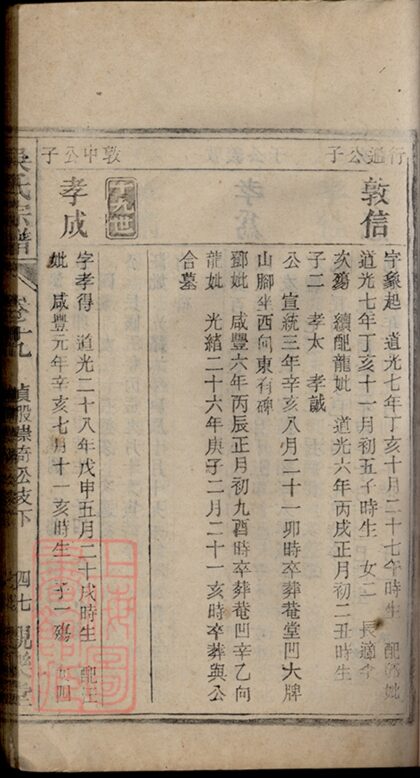 行通公子
敦信
字象起 道光七年丁亥十二月二十七午時生 配鄧妣
道光七年丁亥十一月初五子時生 女二 長適李
次殤 續配龍妣 道光六年丙戌正月初二丑時生
子二 孝太 孝誠
公 宣統三年辛亥八月二十一卯時卒葬菴堂凹大牌
山腳坐西向東有碑
鄧妣 咸豐六年丙辰正月初九酉時卒葬菴凹辛乙向
龍妣 光緒二十六年庚子二月二十一亥時卒葬與公
合墓
十九世
敦中公子
孝成
字孝得 道光二十八年戊申五月二十戌時生 配王
妣 咸豐元年辛亥七月十一亥時生 子一殤 女四
吳氏宗譜
卷十九
四七